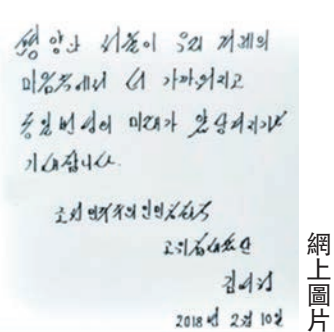 평양과 서울이 우리 겨레의
마음속에서 더 가까워지고
통일번영의 미래가 앞당겨지기를
기대합니다.
조선민주주의인민공화국
고위급대표단
김여정
2018년 2월 10일
網上圖片